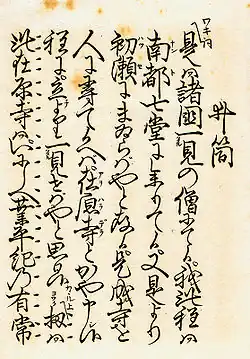 井筒
ワキ詞
是ハ諸國一見の僧にて候我此程ハ
南都七堂に参りて候又是より
初瀬にまゐらばやと存候是成寺を
人に尋て候へバ在原寺とかや申候
程に立寄一見せばやと思候扨ハ
此在原寺ハいにしへ業平紀乃有常